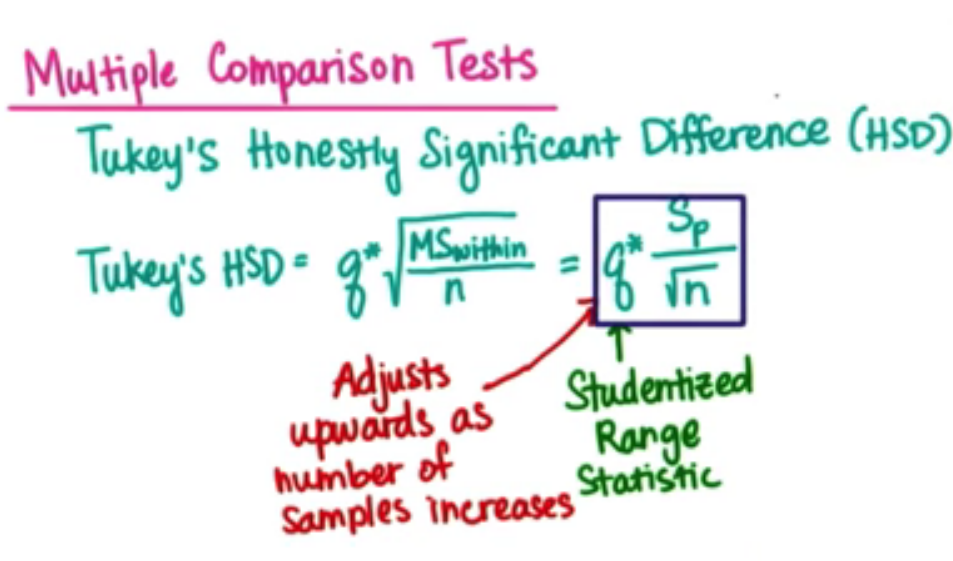 Multiple Comparison Tests
Tukey's Honestly Significant Difference (HSD)
Tukey's HSD = q* √(MSwithin / n) = q* Sp / √n
Adjusts
upwards as
number of
samples increases
Studentized
Range
Statistic